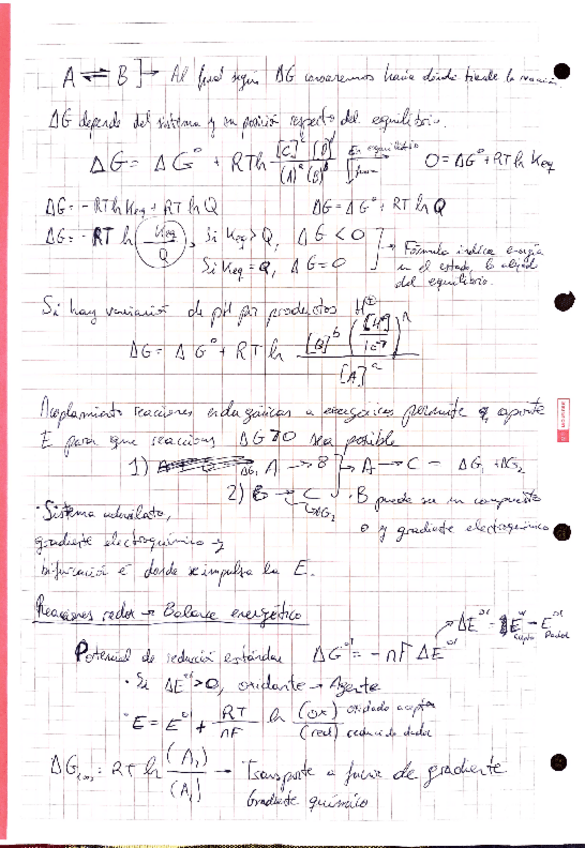 A ⇌ B ]→ Al final según ΔG conoceremos hacia dónde tiende la reacción.
ΔG depende del sistema y su posición respecto del equilibrio.
ΔG = ΔG°' + RT ln [C]^c [D]^d / (A)^a (B)^b En equilibrio 0 = ΔG°' + RT ln Keq
ΔG = - RT ln Keq + RT ln Q ΔG = ΔG°' + RT ln Q
ΔG = - RT ln Keq / Q, Si Keq > Q, ΔG < 0
Si Keq = Q, ΔG = 0
→ Fórmula indica energía
en el estado, lo alejado
del equilibrio.
Si hay variación de pH por productos H⁺
ΔG = ΔG°' + RT ln [B]^b ([H⁺] / 10^-7)^n / [A]^a
Acoplamiento reacciones endergónicas a exergónicas permite q aporte
E para que reacciones ΔG>0 sea posible
1) A → B ΔG₁ → A → C = ΔG₁ + ΔG₂
2) B → C ΔG₂
· B puede ser un compuesto
o y gradiente electroquímico
· Sistema adenilato,
gradiente electroquímico y
bifurcación é donde se impulsa la E.
Reacciones redox → Balance energético
ΔE°' = E°' - E°'
Potencial de reducción estándar ΔG°' = - nF ΔE°'
· Si ΔE°' > 0, oxidante → Agente
· E = E°' + RT / nF ln (ox) / (red) oxidado aceptor
reducido dador
ΔG = RT ln (A₁) / (A₁) → Transporte a favor de gradiente
Gradiente químico